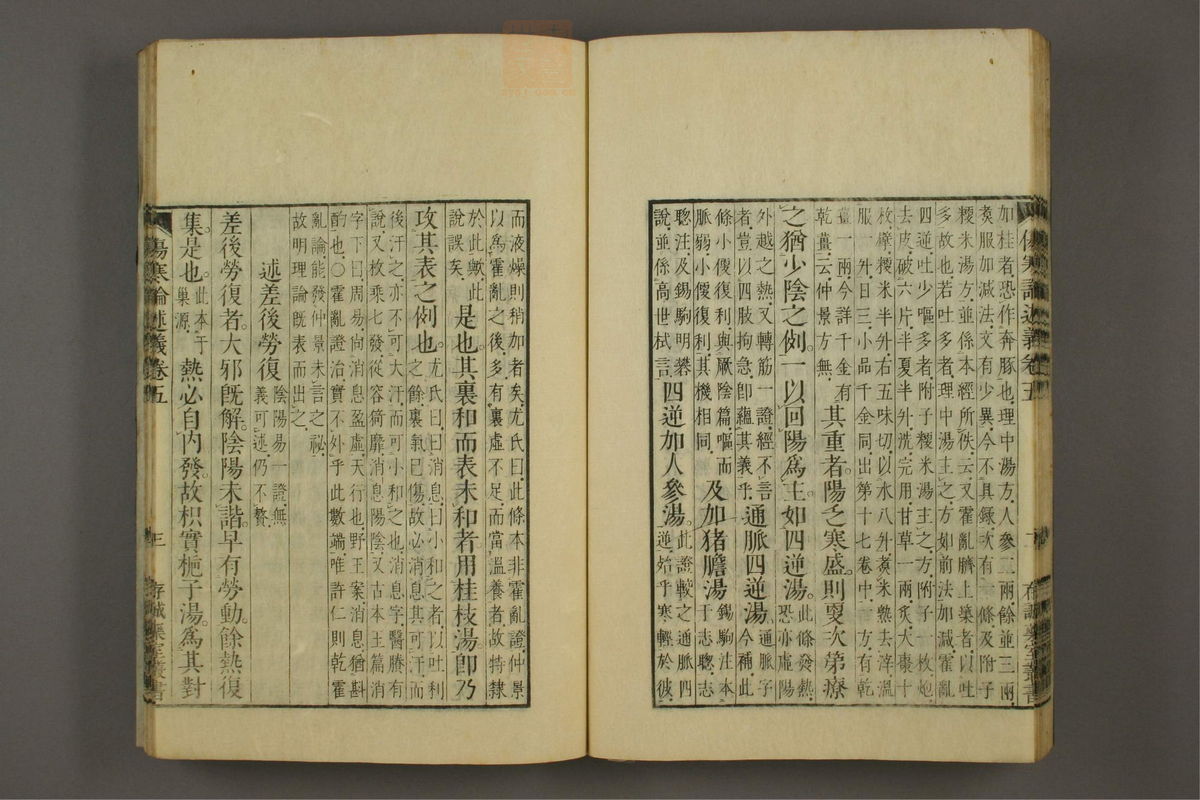 加桂者恐作奔豚也理中湯方人參二兩餘並三兩
煑服加減法文有少異今不具錄次有一條及附子
粳米湯方並係本經所佚云又霍亂臍上築者以吐
多故也若吐多者理中湯主之方如前法加減霍亂
四逆吐少嘔多者附子粳米湯主之方附子一枚炮
去皮破六片半夏半升洗完用甘草一兩炙大棗十
枚擘粳米半升右五味切以水八升煑米熟去滓溫
服一升日三小品千金同出第十七卷中一方有乾
薑一兩今詳千金有
乾薑云仲景方無
其重者陽乏寒盛則亟次第療
之猶少陰之例一以回陽爲主如四逆湯
此條發熱
恐亦虛陽
外越之熱又轉筋一證經不言
者豈以四肢拘急卽蘊其義乎
通脈四逆湯
通脈字
今補此
條小便復利與厥陰篇嘔而
脈弱小便復利其機相同
及加猪膽湯
錫駒注本
于志聰志
聰注及錫駒明攀
說並係高世栻言
四逆加人參湯
此證較之通脈四
逆始乎寒輕於彼
傷寒論述義卷五
存誠樂室叢書
而液燥則稍加者矣尤氏曰此條本非霍亂證仲景
以爲霍亂之後多有裏虛不足而當溫養者故特隸
於此歟此
說誤矣
是也其裏和而表未和者用桂枝湯卽乃
攻其表之例也
尤氏曰曰消息曰小和之者以吐利
之餘裏氣已傷故必消息其可汗而
後汗之亦不可大汗而可小和之也消息字醫賸有
說又枚乘七發從容猗靡消息陽陰又古本玉篇消
字下曰周易尙消息盈虛天行也野王案消息猶斟
酌也○霍亂證治實不外乎此數端唯許仁則乾霍
亂論能發仲景未言之祕
故明理論旣表而出之
述差後勞復
陰陽易一證無
義可述仍不贅
差後勞復者大邪旣解陰陽未諧早有勞動餘熱復
集是也
此本于
巢源
熱必自內發故枳實梔子湯爲其對
傷寒論述義卷五
三
存誠樂室叢書